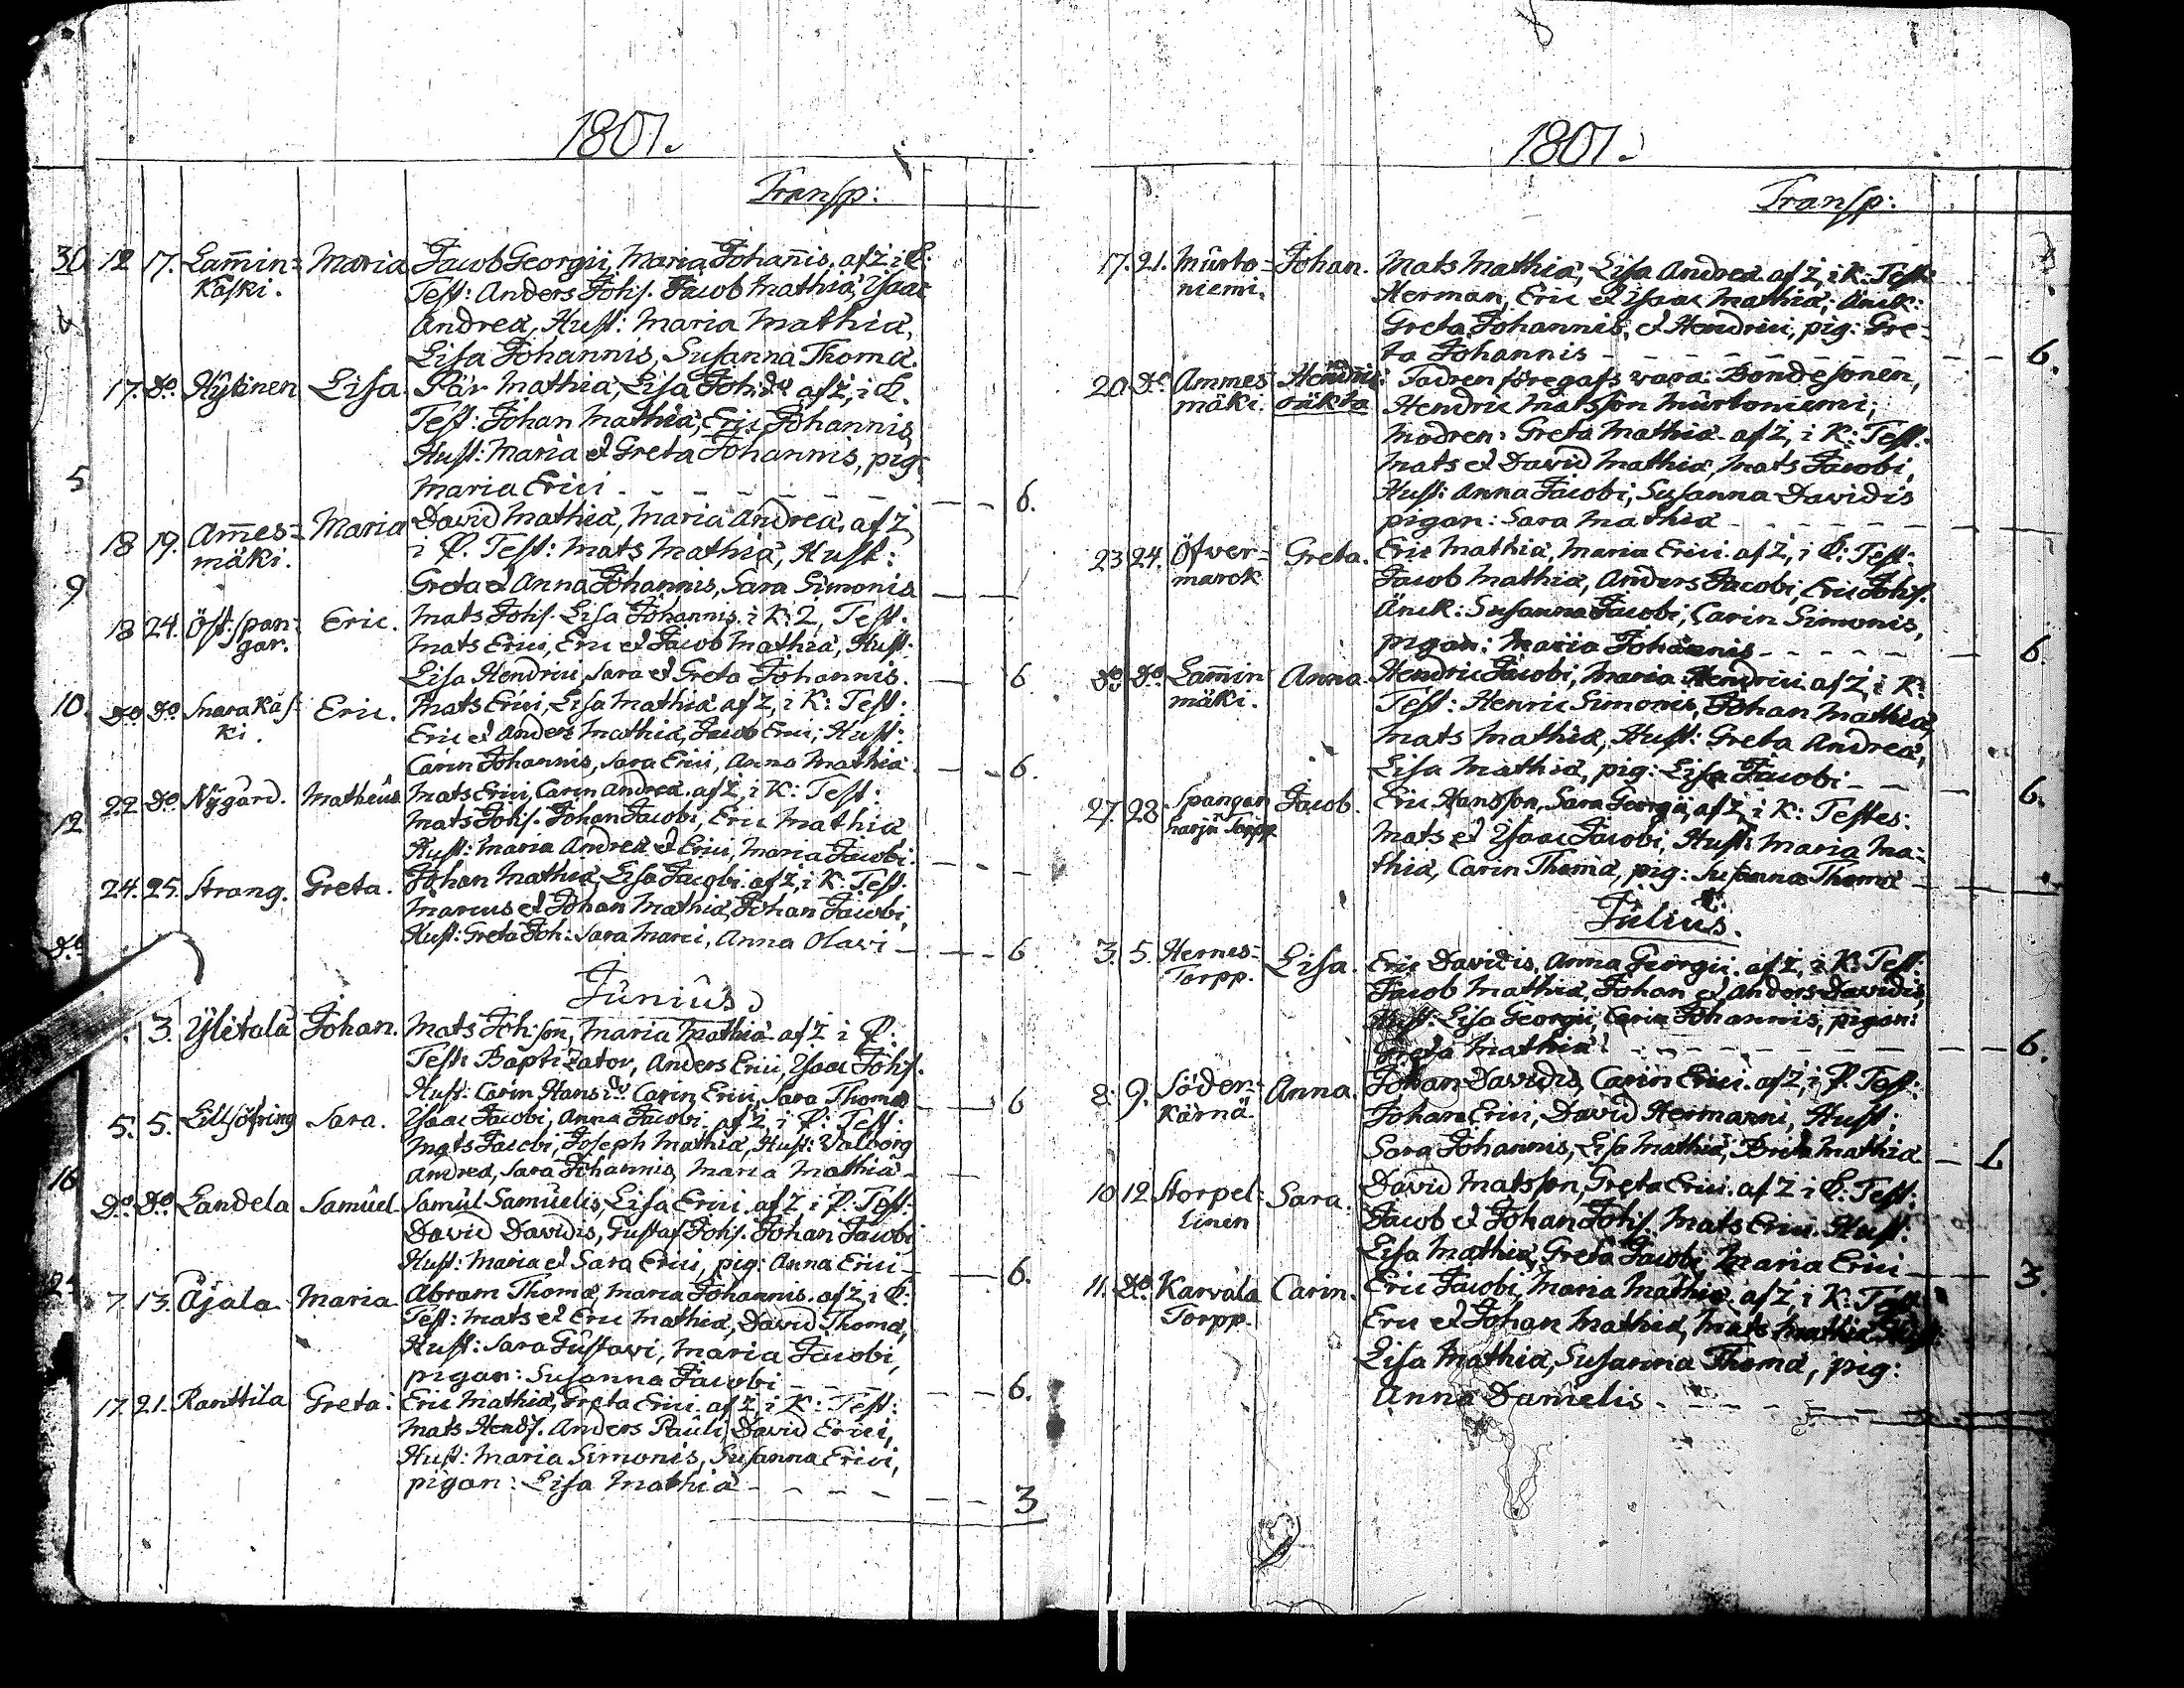 1801.
Transp:
30 12 17. Lam̄in= Maria Jacob Georgii, Maria Johan̄is. af z. i
Kåski. Test: Anders Johs. Jacob Mathiæ, Ysaac
Andreæ, Hust: Maria Mathiæ,
Lisa Johannis, Susanna Thomæ.
17. Do. Hytinen Lisa. Pär Mathiæ, Lisa af z, i
Test: Johan Mathiæ, Eric Johannis,
Hust: Maria et Greta Johannis, pig.
5 Maria Erici - - - - - - 6.
18 19. Am̄es= Maria David Mathiæ, Maria Andreæ. af z
mäki. i P. Test: Mats Mathiæ, Hust:
9 Greta et Anna Johannis, Sara Simonis
18 24. Öst. span= Eric. Mats Johs. Lisa Johannis. i K: 2, Test.
gar. Mats Erici, Eric et Jacob Mathiæ, Hust:
Lisa Hendrici, Sara et Greta Johannis. 6
10. Do Do Snarakås= Eric. Mats Erici, Lisa Mathiæ af z, i K: Test:
ki. Eric et Anders Mathiæ, Jacob Erici, Hust:
Carin Johannis, Sara Erici, Anna Mathiæ - - 6.
22 Do Nÿgård. Mathëus Mats Erici, Carin Andreæ. af z, i K: Test:
12 Mats Johs. Johan Jacobi, Eric Mathiæ
Hust: Maria Andreæ et Erici, Maria Jacobi.
24. 25. Strang. Greta. Johan Mathiæ, Lisa Jacobi. af z, i K: Test.
Marcus et Johan Mathiæ, Johan Jacobi,
Do. Hust: Greta Joh: Sara Marci, Anna Olavi - - 6
Junius.
3. Ÿlitalå Johan. Mats Joh:son, Maria Mathiæ af z i P.
Test: Baptizator, Anders Erici, Ysaac Johs.
Hust: Carin Hans dr. Carin Erici, Sara Thomæ 6
5. 5. Lillsöfring Sara. Ysaac Jacobi, Anna Jacobi. af z, i P: Test:
Mats Jacobi, Joseph Mathiæ, Hust: Valborg
16 Andreæ, Sara Johannis, Maria Mathiæ -
Do. Do. Landela Samuel Samül Samüelis, Lisa Erici. af z i P. Test:
David Davidis, Gustaf Johs. Johan Jacobi
Hust: Maria et Sara Erici, pig: Anna Erici - 6.
7. 13. Äjala. Maria Abram Thomæ, Maria Johannis. af z, i
Test: Mats et Eric Mathiæ, David Thomæ,
Hust: Sara Gustavi, Maria Jacobi,
pigan: Susanna Jacobi - - - - 6.
17. 21. Ranttila Greta. Eric Mathiæ, Greta Erici. af z, i K: Test:
Mats Hends. Anders Pauli, David Erici,
Hust: Maria Simonis, Susanna Erici,
pigan: Lisa Mathiæ - - - - 3
1801.
Transp:
17. 21. Murto= Johan. Mats Mathiæ, Lisa Andreæ. af z, i K: Test:
niemi. Herman, Eric et Ysaac Mathiæ; Änck:
Greta Johannis, et Hendrici, pig: Gre=
ta Johannis - - - - - - 6.
20. Do. Ammes Hendric Fadren föregafs vara: Bondesonen,
mäki. oäkta Hendric Matsson Murtoniemi;
Modren: Greta Mathiæ. af z, i K: Test:
Mats et David Mathiæ, Mats Jacobi,
Hust: Anna Jacobi, Susanna Davidis
pigan: Sara Mathiæ - - - -
23. 24. Öfver= Greta. Eric Mathiæ, Maria Erici. af z, i Test:
marck Jacob Mathiæ, Anders Jacobi, Eric Johs.
Änck: Susanna Jacobi, Carin Simonis,
pigan: Maria Johannis - - - - 6.
Do. Do. Lam̄in Anna. Hendric Jacobi, Maria Hendrici. af z, i K:
mäki. Test: Henric Simonis, Johan Mathiæ,
Mats Mathiæ, Hust: Greta Andreæ,
Lisa Mathiæ, pig: Lisa Jacobi - - 6.
27. 28 Spangar Jacob. Eric Hansson, Sara Georgii. af z, i K: Testes:
harju Torpp Mats et Ysaac Jacobi, Hust: Maria Ma=
thiæ, Carin Thomæ, pig: Susanna Thomæ
Julius.
3. 5. Hernes= Lisa. Eric Davidis, Anna Georgii. af z, i K: Test:
Torpp. Jacob Mathiæ, Johan et Anders Davidis,
Hust: Lisa Georgii, Carin Johannis, pigan:
Greta Mathiæ. - - - - - 6.
8. 9. Söder= Anna. Johan Davidis, Carin Erici. af z, i P. Test:
Kärnä. Johan Erici, David Hermanni, Hust:
Sara Johannis, Lisa Mathiæ, Brita Mathiæ - 1.
10 12 Storpel= Sara. David Matsson, Greta Erici. af z i Test:
linen Jacob et Johan Johs. Mats Erici. Hust:
Lisa Mathiæ, Greta Jacobi, Maria Erici 3.
11. Do. Karvala Carin. Eric Jacobi, Maria Mathiæ. af z, i K: Test
Torpp. Eric et Johan Mathiæ, Mats Mathiæ. Hust:
Lisa Mathiæ, Susanna Thomæ, pig:
Anna Danielis. - - - -